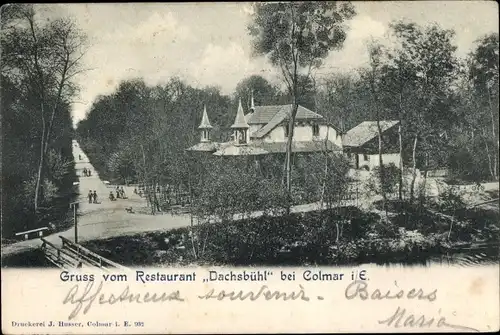 Gruss vom Restaurant „Dachsbühl“ bei Colmar i E.
Affectueux souvenir. Baisers
Maria
Druckerei J. Husser, Colmar i. E. 992